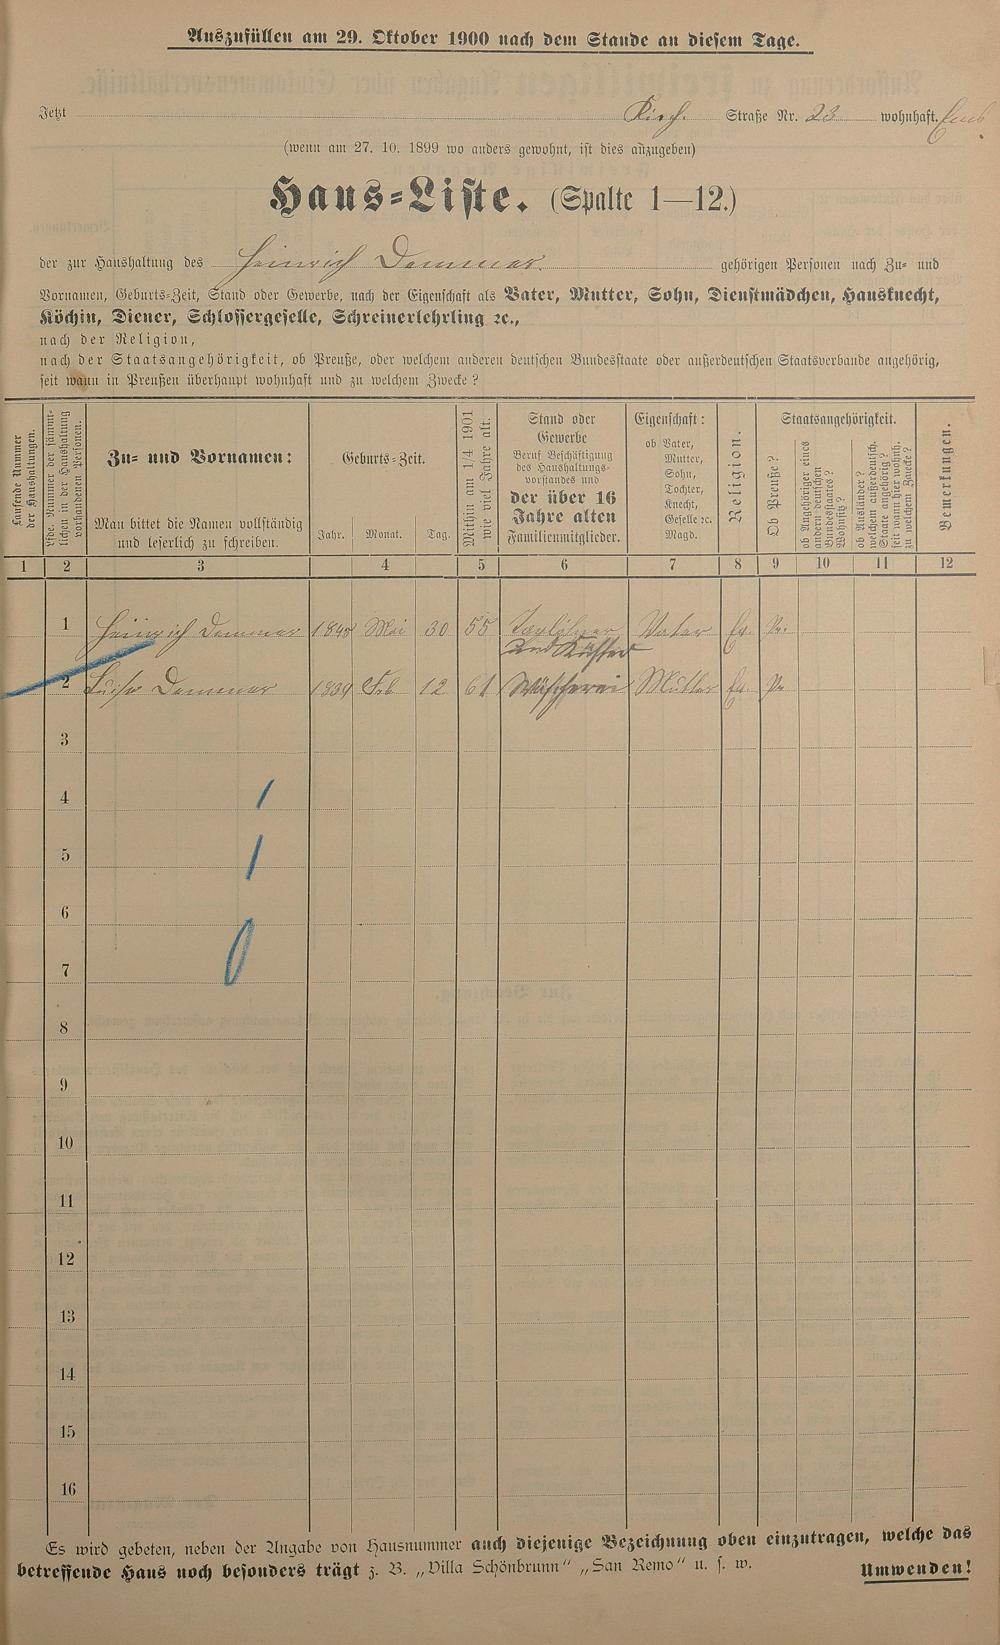 Auszufüllen am 29. Oktober 1900 nach dem Stande an diesem Tage.
Jetzt Kirch. Straße Nr. 23 wohnhaft. Ems
(wenn am 27. 10. 1899 wo anders gewohnt, ist dies anzugeben)
Haus-Liste. (Spalte 1—12.)
der zur Haushaltung des Heinrich Demmer. gehörigen Personen nach Zu- und
Vornamen, Geburts-Zeit, Stand oder Gewerbe, nach der Eigenschaft als Vater, Mutter, Sohn, Dienstmädchen, Hausknecht,
Köchin, Diener, Schlossergeselle, Schreinerlehrling ꝛc.,
nach der Religion,
nach der Staatsangehörigkeit, ob Preuße, oder welchem anderen deutschen Bundesstaate oder außerdeutschen Staatsverbande angehörig,
seit wann in Preußen überhaupt wohnhaft und zu welchem Zwecke?
Laufende Nummer
der Haushaltungen.
Lfde. Nummer der sämmt-
lichen in der Haushaltung
vorhandenen Personen.
Zu- und Vornamen:
Man bittet die Namen vollständig
und leserlich zu schreiben.
Geburts-Zeit.
Jahr. Monat. Tag.
Mithin am 1/4 1901
wie viel Jahre alt.
Stand oder
Gewerbe
Beruf Beschäftigung
des Haushaltungs-
vorstandes und
der über 16
Jahre alten
Familienmitglieder.
Eigenschaft:
ob Vater,
Mutter,
Sohn,
Tochter,
Knecht,
Geselle ꝛc.
Magd.
Religion.
Staatsangehörigkeit.
Ob Preuße?
ob Angehöriger eines
andern deutschen
Bundesstaates?
Wohnsitz?
ob Ausländer?
welchem außerdeutsch.
Staate angehörig?
seit wann hier wohnh.
zu welchem Zwecke?
Bemerkungen.
1 2 3 4 5 6 7 8 9 10 11 12
1 Heinrich Demmer 1845 Mai 30 55 Taglöhner Vater Ev. Pr.
und Küster
2 Luise Demmer 1839 Feb 12 61 Wäscherei Mutter Ev. Pr
3
4
5
6
7
8
9
10
11
12
13
14
15
16
Es wird gebeten, neben der Angabe von Hausnummer auch diejenige Bezeichnung oben einzutragen, welche das
betreffende Haus noch besonders trägt z. B. „Villa Schönbrunn“ „San Remo“ u. s. w. Umwenden!